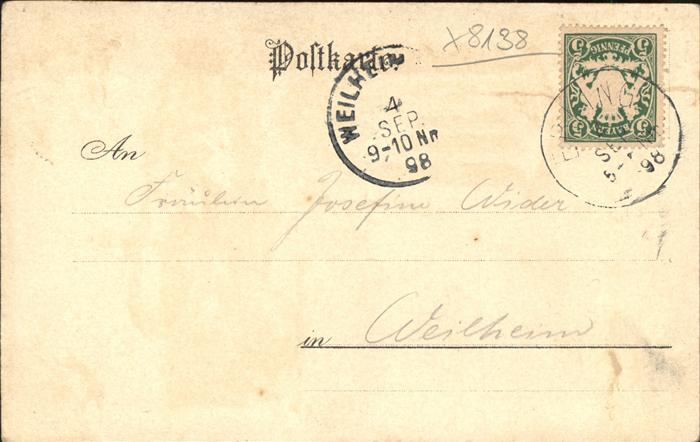 Postkarte
x8138
5 5
PFENNIG
BAYERN
5 5
WEILHEIM
4
SEP.
9-10 Nm
98
SEP
98
An
Fräulein Josefine Wider
in Weilheim